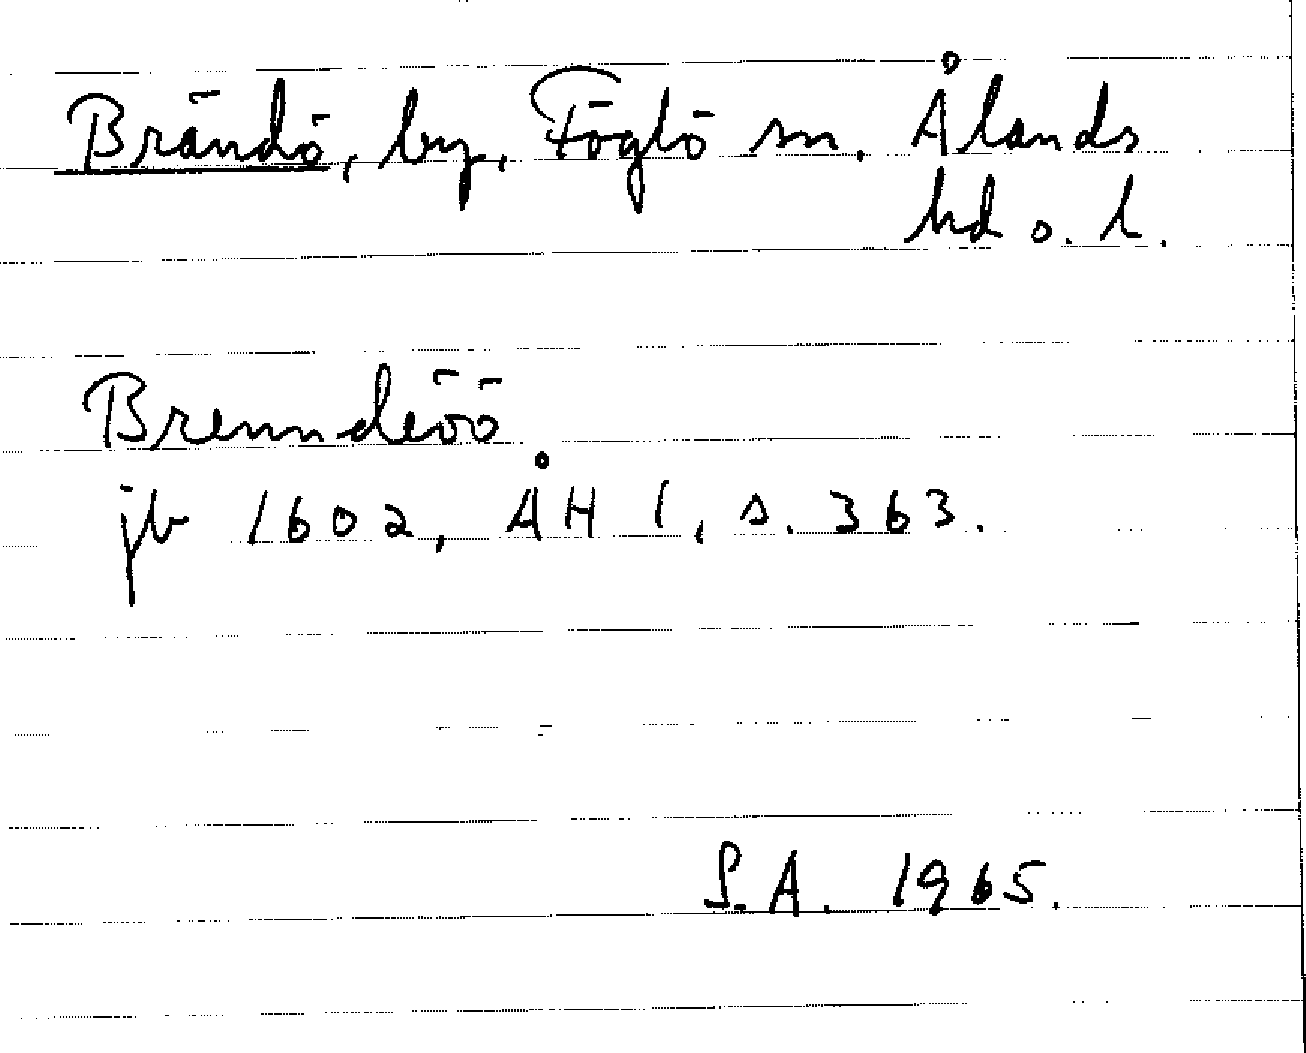 Brändö, by, Föglö sn. Ålands
hd o. l.
Brenndeöö
jb 1602, ÅH 1, s. 363.
S.A. 1965.